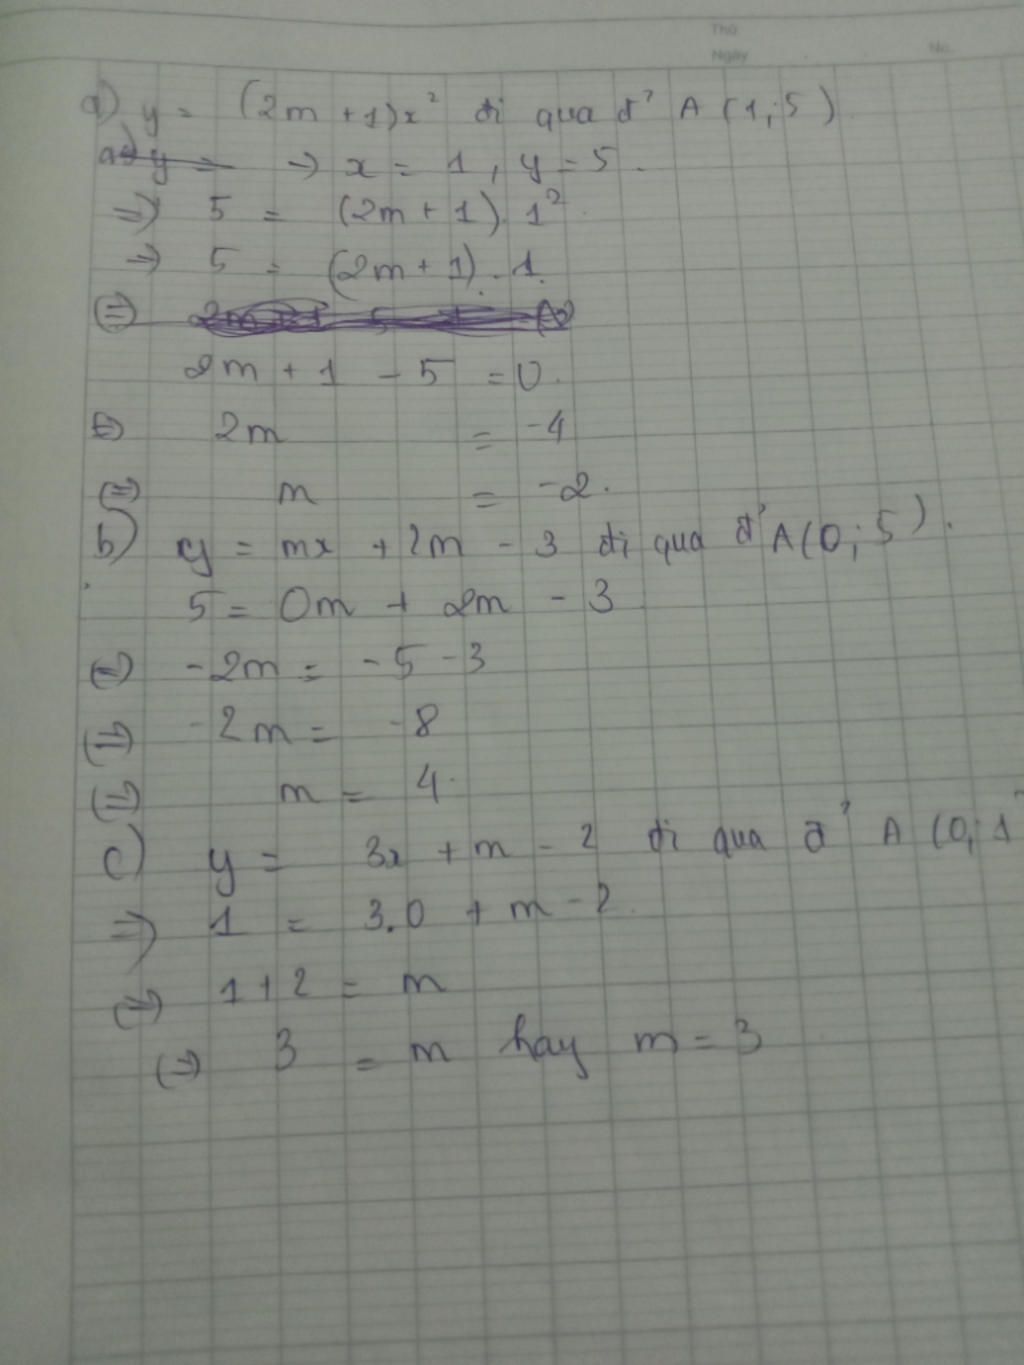 Thứ
Ngày No.
a) y = (2m + 1)x² đi qua đ² A (1; 5)
a) y = → x = 1, y = 5.
=> 5 = (2m + 1). 1².
=> 5 = (2m + 1). 1.
<=>
2m + 1 - 5 = 0.
<=> 2m = -4
<=> m = -2.
b) y = mx + 2m - 3 đi qua đ' A(0; 5).
5 = 0m + 2m - 3
<=> -2m = -5 - 3
<=> -2m = -8
<=> m = 4.
c) y = 3x + m - 2 đi qua đ' A (0; 1
=> 1 = 3.0 + m - 2.
<=> 1 + 2 = m
<=> 3 = m hay m = 3